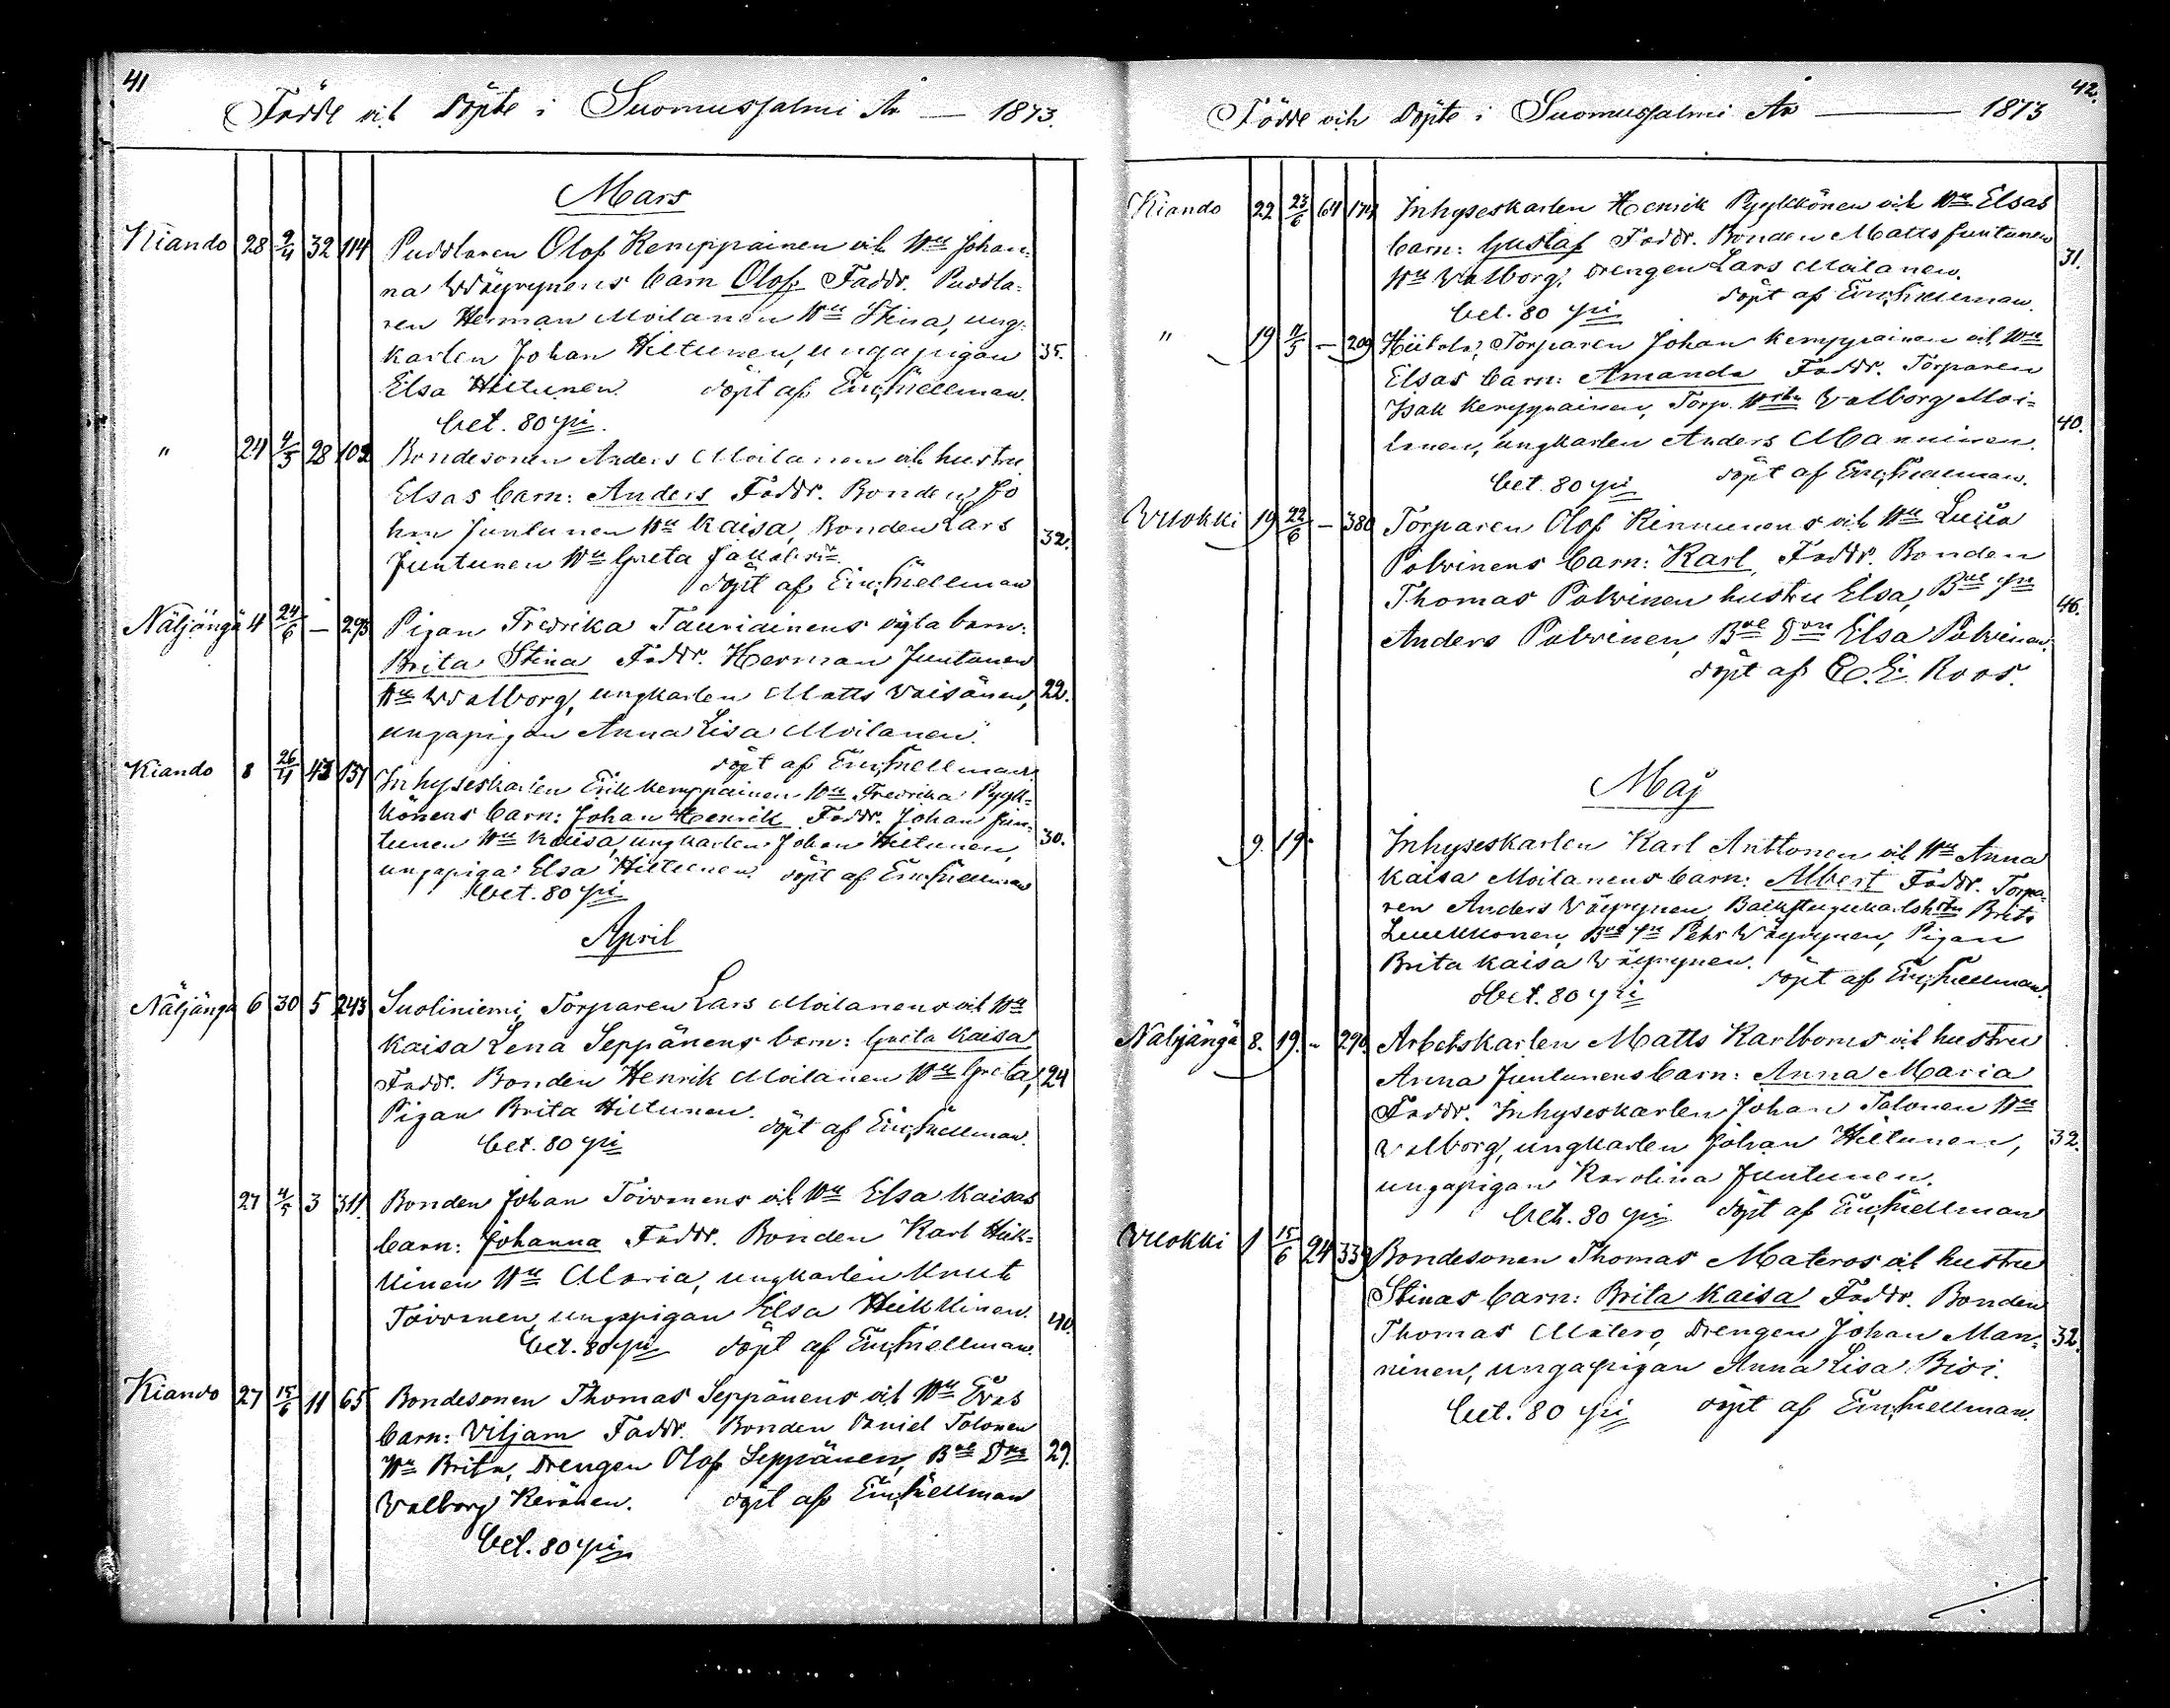 41
Födde och Döpte i Suomussalmi År — 1873.
Mars
Kiando 28 9/4 32 114 Puddlaren Olof Kemppainen och Hu Johan-
na Wäyrynens barn Olof. Faddr. Puddla-
ren Herman Moilanen Hu Stina, ung-
karlen Johan Hiltunen, ungapigan 35.
Elsa Hiltunen. döpt af Em. Snellman.
bet. 80 pi.
" 24 4/5 28 102 Bondesonen Anders Moilanen och hustru
Elsas barn: Anders Faddr. Bonden Jo
han Juntunen Hu Kaisa, Bonden Lars 32.
Juntunen Hu Greta
döpt af Em. Snellman
Näljängä 4 24/6 — 293 Pigan Fredrika Tauriainens oägta barn:
Brita Stina Faddr. Herman Juntunen
Hu Walborg, ungkarlen Matts Väisänen, 22.
ungapigan Anna Lisa Moilanen.
döpt af Em. Snellman.
Kiando 8 26/4 43 137 Inhyseskarlen Erik Kemppainen Hu Fredrika Pyyk-
könens barn: Johan Henrik Faddr. Johan Jun-
tunen Hu Kaisa, ungkarlen Johan Hiltunen, 30.
ungapiga: Elsa Hiltunen. döpt af Em. Snellman
bet. 80 pi
April
Näljängä 6 30 5 243 Suoliniemi, Torparen Lars Moilanens och Hu
Kaisa Lena Seppänens barn: Greta Kaisa
Faddr. Bonden Henrik Moilanen Hu Greta, 24
Pigan Brita Hiltunen. döpt af Em. Snellman.
bet. 80 pi
27 4/5 3 311. Bonden Johan Toivanens och Hu Elsa Kaisas
barn: Johanna Faddr. Bonden Karl Heik-
kinen Hu Maria, ungkarlen Knut
Toivanen, ungapigan Elsa Heikkinen. 40.
bet. 80 pi döpt af Em. Snellman.
Kiando 27 15/6 11 65 Bondesonen Thomas Seppänens och Hu Evas
barn: Viljam Faddr. Bonden Daniel Tolonen
Hu Brita, Drengen Olof Seppänen, Bde Don 29.
Walborg Keränen. döpt af Em. Snellman
bet. 80 pi
42.
Födde och Döpte i Suomussalmi År — 1873
Kiando 22 23/6 64 Inhyseskarlen Henrik Pyykkönen och Hu Elsas
barn: Gustaf Faddr. Bonden Matts Juntunen 31.
Hu Walborg, Drengen Lars Moilanen.
bet. 80 pi döpt af Em. Snellman.
" 19 — 209 Torparen Johan Kemppainen och Hu
Elsas barn: Amanda Faddr. Torparen
Isak Kemppainen, Torp. Walborg Moi-
lanen, ungkarlen Anders Manninen. 40.
bet. 80 pi döpt af Em. Snellman.
Vuokki 19 22/6 — 380 Torparen Olof Kinnunens och Hu Luisa
Polvinens barn: Karl, Faddr. Bonden
Thomas Polvinen hustru Elsa, Bde Sn 46.
Anders Polvinen, Bde Don Elsa Polvinen.
döpt af C. E. Roos.
Maj
9. 19. Inhyseskarlen Karl Anttonen och Hu Anna
Kaisa Moilanens barn: Albert Faddr. Torpa-
ren Anders Väyrynen, Backstugukarlshstu Brita
Luukkonen, Bde Sn Petr Wäyrynen, Pigan
Brita Kaisa Wäyrynen.
bet. 80 pi döpt af Em. Snellman.
Näljängä 8. 19. " 290 Arbetskarlen Matts Karlboms och hustru
Anna Juntunens barn: Anna Maria
Faddr. Inhyseskarlen Johan Tolonen Hu
Walborg, ungkarlen Johan Hiltunen, 32.
ungapigan Karolina Juntunen.
bet. 80 pi döpt af Em. Snellman
Vuokki 1 15/6 24 339 Bondesonen Thomas Materos och hustru
Stinas barn: Brita Kaisa Faddr. Bonden
Thomas Matero, Drengen Johan Man- 32.
ninen, ungapigan Anna Lisa
bet. 80 pi döpt af Em. Snellman.